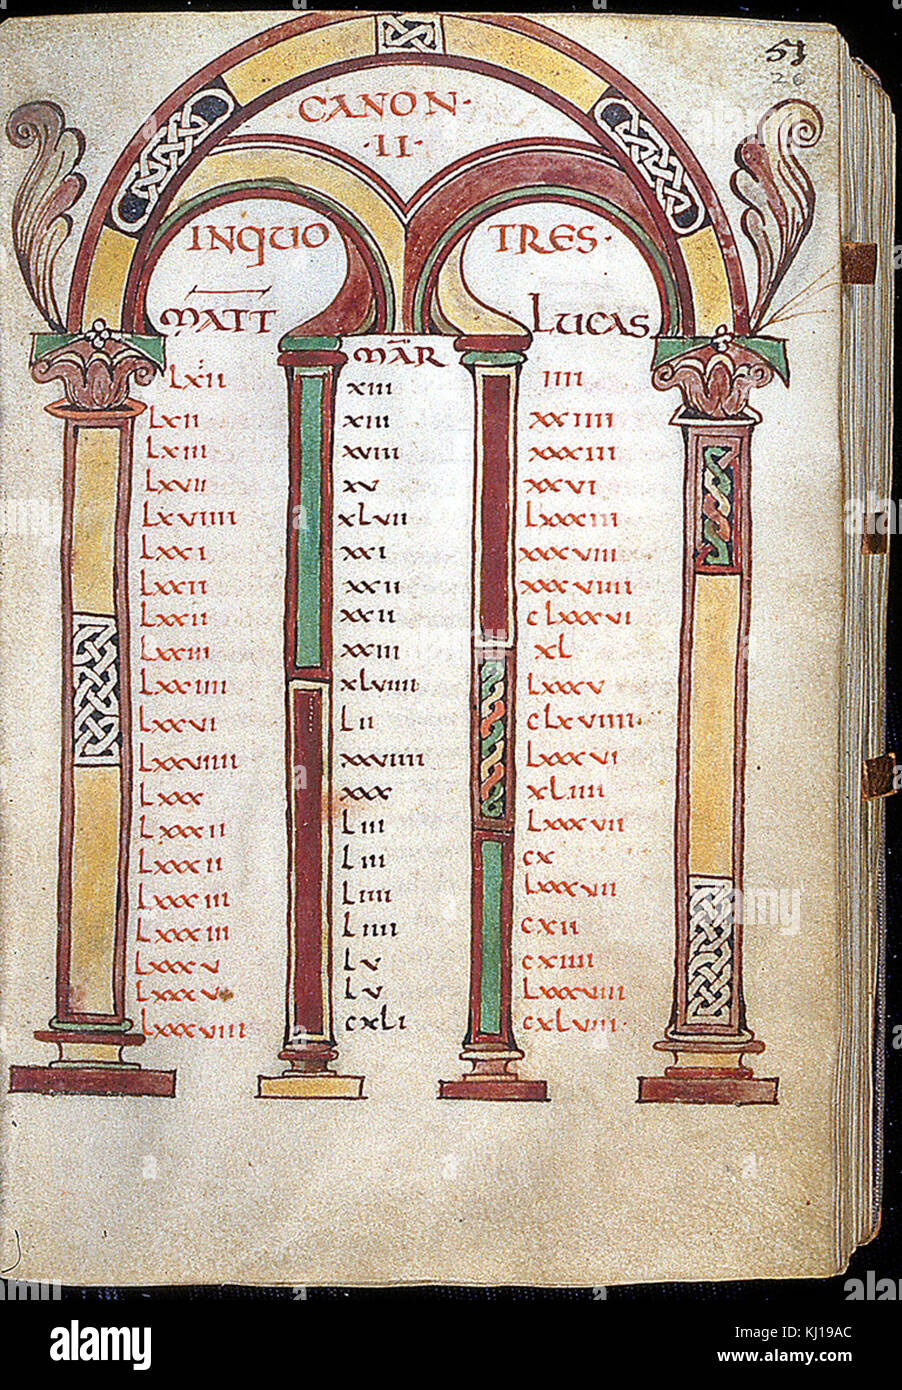 51
26
CANON·
·II·
INQUO TRES·
MATT MAR LUCAS
LXII XIII IIII
LXII XIII XXIIII
LXIII XVIII XXXIII
LXVII XV XXVI
LXVIIII XLVII LXXXIII
LXXI XXI XXXVIII
LXXII XXII XXXVIIII
LXXII XXII CLXXXVI
LXXIII XXIII XL
LXXIIII XLVIIII LXXXV
LXXVI LII CLXVIIII·
LXXVIIII XXVIIII LXXXVI
LXXX XXX XLIIII
LXXXII LIII LXXXVII
LXXXII LIII CX
LXXXIII LIIII LXXXVII
LXXXIII LIIII CXII
LXXXV LV CXIIII
LXXXV LV LXXXVIII
LXXXVIII CXLI CXLVIII·
alamy
Image ID: KJ19AC
www.alamy.com